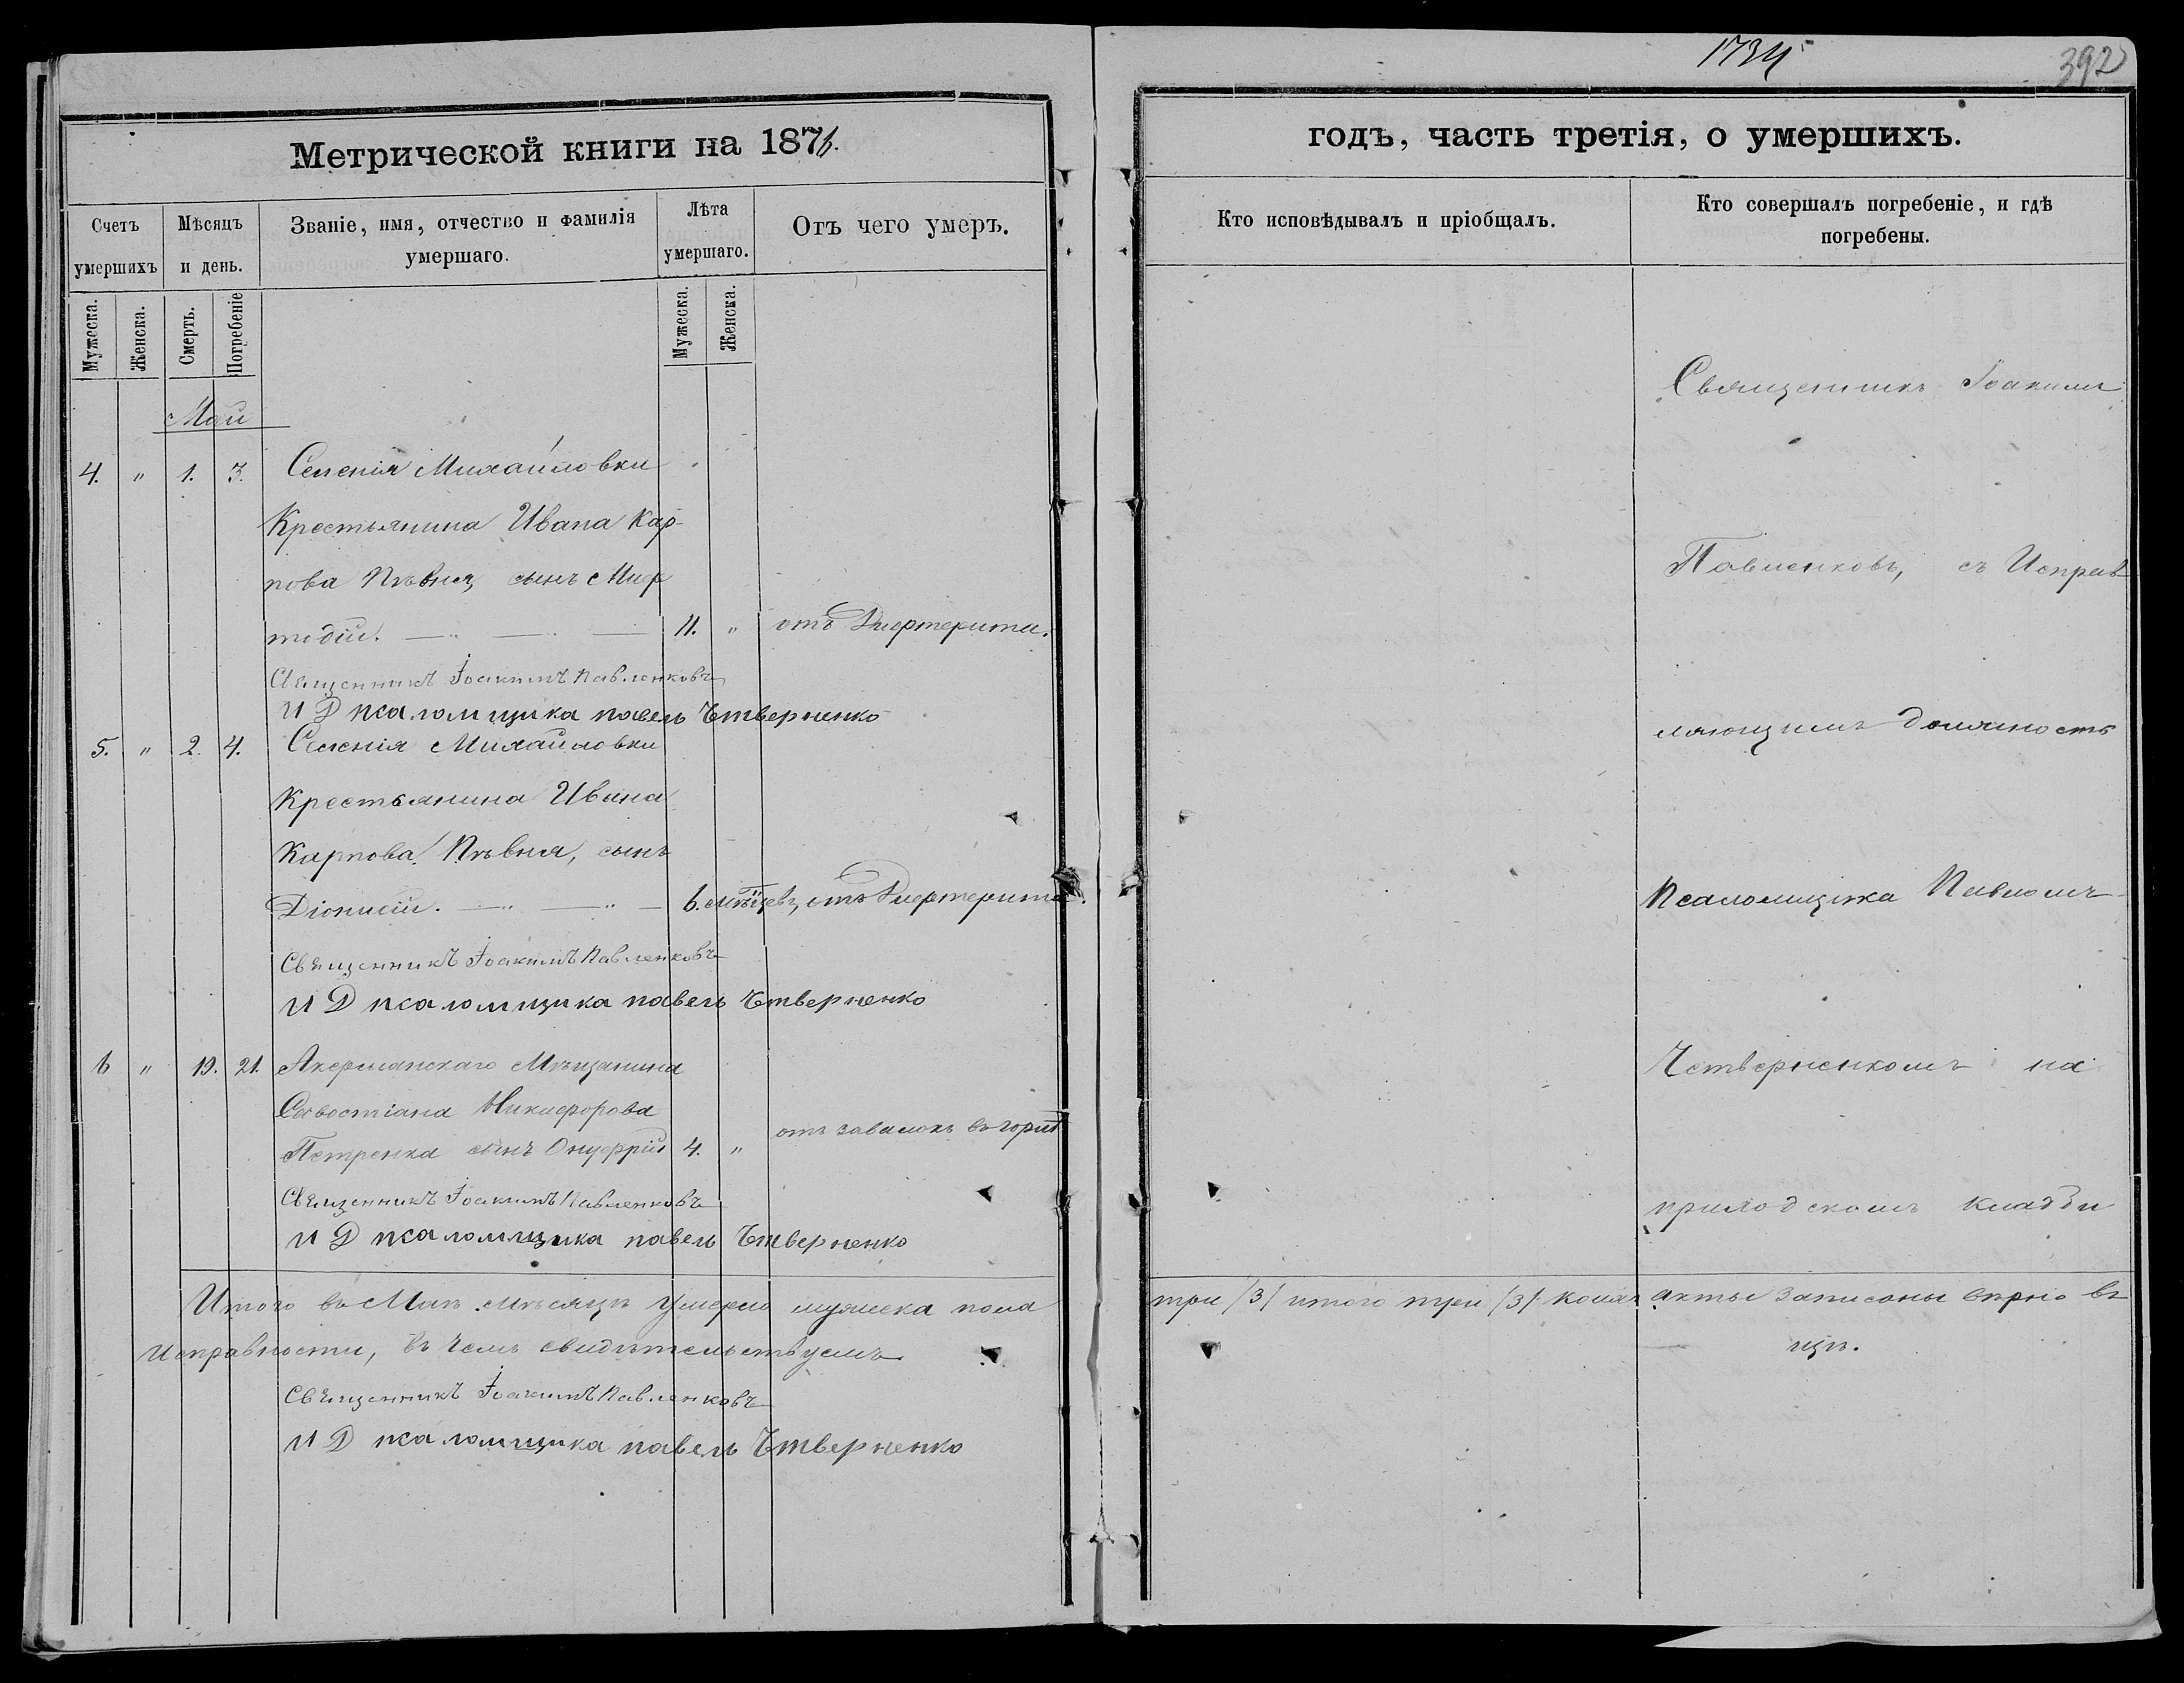 1734
392
Метрической книги на 1876.
годъ, часть третія, о умершихъ.
Счетъ умершихъ
Мѣсяцъ и день.
Званіе, имя, отчество и фамилія умершаго.
Лѣта умершаго.
Отъ чего умеръ.
Кто исповѣдывалъ и пріобщалъ.
Кто совершалъ погребеніе, и гдѣ погребены.
Мужеска.
Женска.
Смерть.
Погребеніе
Мужеска.
Женска.
Май
4. " 1. 3. Селенія Михайловки
Крестьянина Ивана Кар-
пова Пѣвня, сынъ Меф
тодій. 11. " отъ Дифтерита.
Священникъ Іоакимъ Павленковъ
И Д псаломщика павелъ Четверненко
5. " 2. 4. Селенія Михайловки
Крестьянина Ивана
Карпова Пѣвня, сынъ
Діонисій. 6. мѣсяцевъ, отъ Дифтерита.
Священникъ Іоакимъ Павленковъ
И Д псаломщика павелъ Четверненко
6 " 19. 21. Акерманскаго Мѣщанина
Савостіана Никифорова
Петренка сынъ Онуфрій 4. " отъ завалокъ въ горлѣ
Священникъ Іоакимъ Павленковъ
И Д псаломщика павелъ Четверненко
Итого въ Маѣ мѣсяцѣ умерло мужеска пола
Исправности, въ чемъ свидѣтельствуемъ
Священникъ Іоакимъ Павленковъ
И Д псаломщика павелъ Четверненко
Священникъ Іоакимъ
Павленковъ, съ Исправ
ляющимъ должность
Псаломщика Павломъ
Четверненкомъ на
приходскомъ кладби
три /3/ итого три /3/ акты записаны вѣрно въ
щѣ.